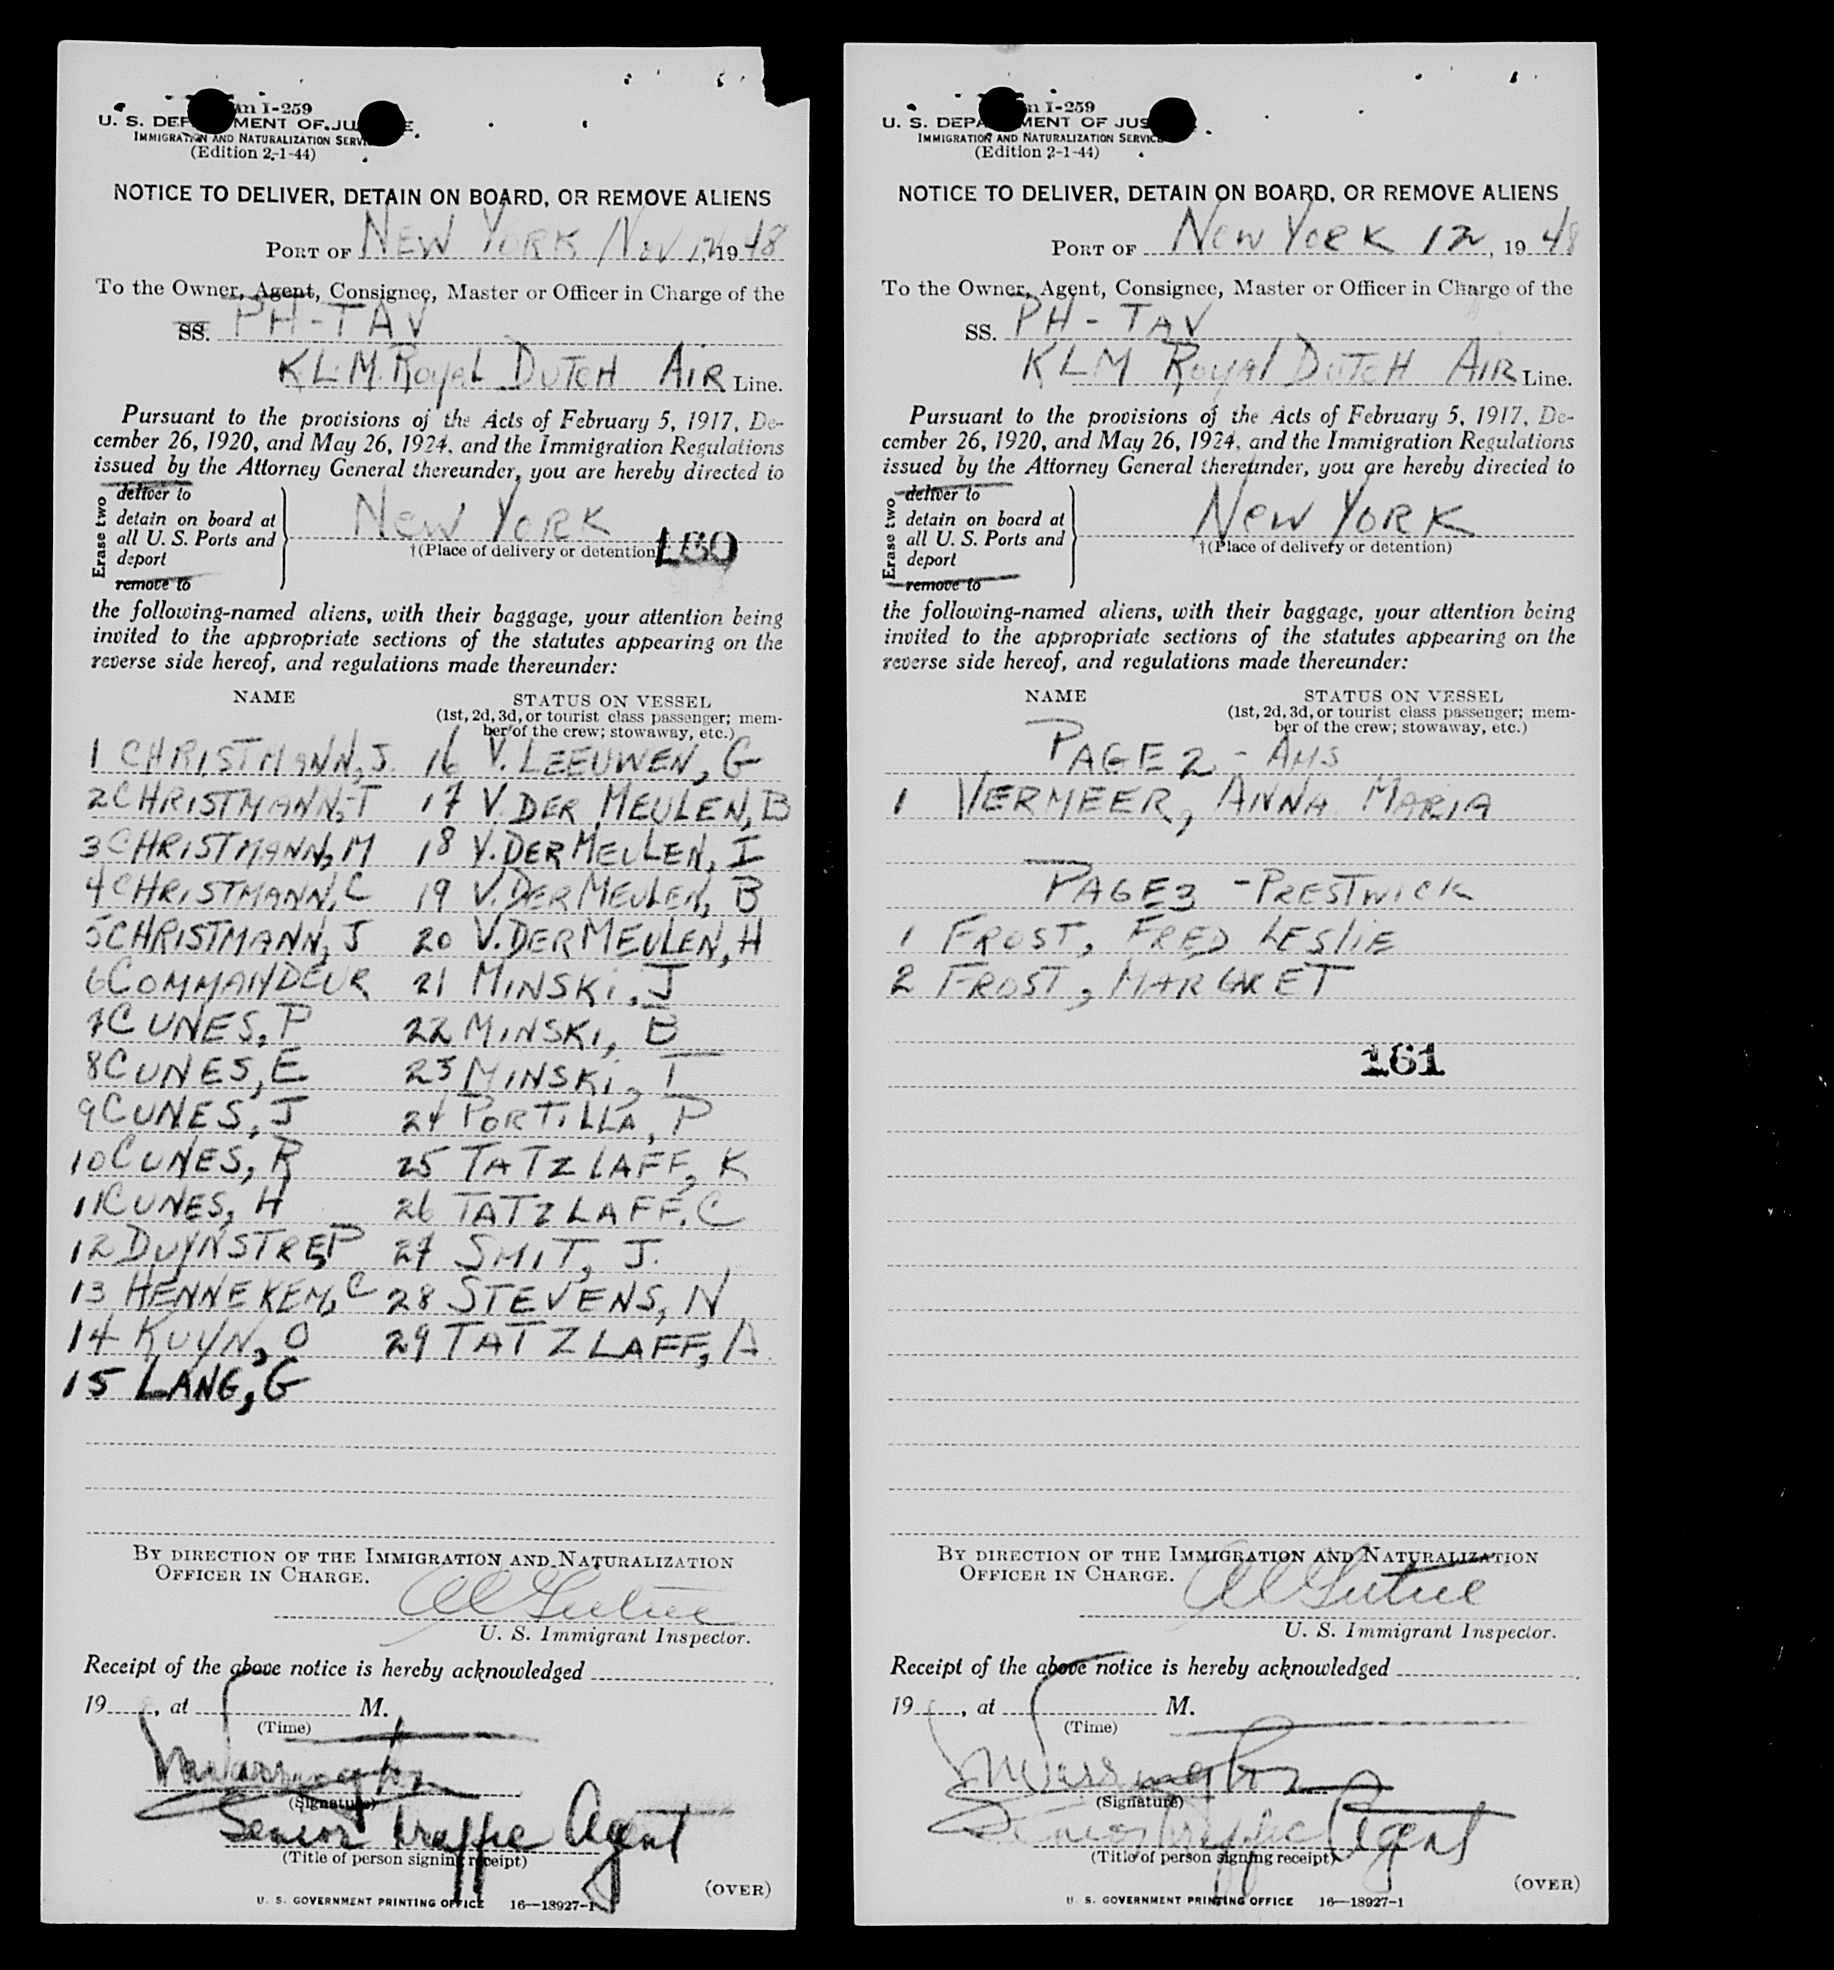 Form I-259
U. S. DEPARTMENT OF JUSTICE
IMMIGRATION AND NATURALIZATION SERVICE
(Edition 2-1-44)
NOTICE TO DELIVER, DETAIN ON BOARD, OR REMOVE ALIENS
PORT OF NEW YORK Nov 12, 1948
To the Owner, Agent, Consignee, Master or Officer in Charge of the
SS. PH-TAV
K.L.M. Royal DUTCH AIR Line.
Pursuant to the provisions of the Acts of February 5, 1917, De-
cember 26, 1920, and May 26, 1924, and the Immigration Regulations
issued by the Attorney General thereunder, you are hereby directed to
Erase two
deliver to
detain on board at
all U. S. Ports and
deport
remove to
New YORK
†(Place of delivery or detention)
160
the following-named aliens, with their baggage, your attention being
invited to the appropriate sections of the statutes appearing on the
reverse side hereof, and regulations made thereunder:
NAME STATUS ON VESSEL
(1st, 2d, 3d, or tourist class passenger; mem-
ber of the crew; stowaway, etc.)
1 CHRISTMANN, J. 16 V. LEEUWEN, G
2 CHRISTMANN, T 17 V. DER MEULEN, B
3 CHRISTMANN, M 18 V. DER MEULEN, I
4 CHRISTMANN, C 19 V. DER MEULEN, B
5 CHRISTMANN, J 20 V. DER MEULEN, H
6 COMMANDEUR 21 MINSKI, J
7 CUNES, P 22 MINSKI, B
8 CUNES, E 23 MINSKI, T
9 CUNES, J 24 PORTILLA, P
10 CUNES, R 25 TATZLAFF, K
11 CUNES, H 26 TATZLAFF, C
12 DUYNSTRE, P 27 SMIT, J.
13 HENNEKEM, C 28 STEVENS, N
14 KUYN, O 29 TATZLAFF, A.
15 LANG, G
BY DIRECTION OF THE IMMIGRATION AND NATURALIZATION
OFFICER IN CHARGE.
U. S. Immigrant Inspector.
Receipt of the above notice is hereby acknowledged
19 , at M.
(Time)
(Signature)
Senior Traffic Agent
(Title of person signing receipt)
(OVER)
U. S. GOVERNMENT PRINTING OFFICE 16—18927-1
Form I-259
U. S. DEPARTMENT OF JUSTICE
IMMIGRATION AND NATURALIZATION SERVICE
(Edition 2-1-44)
NOTICE TO DELIVER, DETAIN ON BOARD, OR REMOVE ALIENS
PORT OF New YORK 12, 1948
To the Owner, Agent, Consignee, Master or Officer in Charge of the
SS. PH-TAV
KLM Royal DUTCH AIR Line.
Pursuant to the provisions of the Acts of February 5, 1917, De-
cember 26, 1920, and May 26, 1924, and the Immigration Regulations
issued by the Attorney General thereunder, you are hereby directed to
Erase two
deliver to
detain on board at
all U. S. Ports and
deport
remove to
New YORK
†(Place of delivery or detention)
the following-named aliens, with their baggage, your attention being
invited to the appropriate sections of the statutes appearing on the
reverse side hereof, and regulations made thereunder:
NAME STATUS ON VESSEL
(1st, 2d, 3d, or tourist class passenger; mem-
ber of the crew; stowaway, etc.)
PAGE 2 - AMS
1 VERMEER, ANNA MARIA
PAGE 3 - PRESTWICK
1 FROST, FRED LESLIE
2 FROST, MARGARET
161
BY DIRECTION OF THE IMMIGRATION AND NATURALIZATION
OFFICER IN CHARGE.
U. S. Immigrant Inspector.
Receipt of the above notice is hereby acknowledged
19 , at M.
(Time)
(Signature)
Senior Traffic Agent
(Title of person signing receipt)
(OVER)
U. S. GOVERNMENT PRINTING OFFICE 16—18927-1